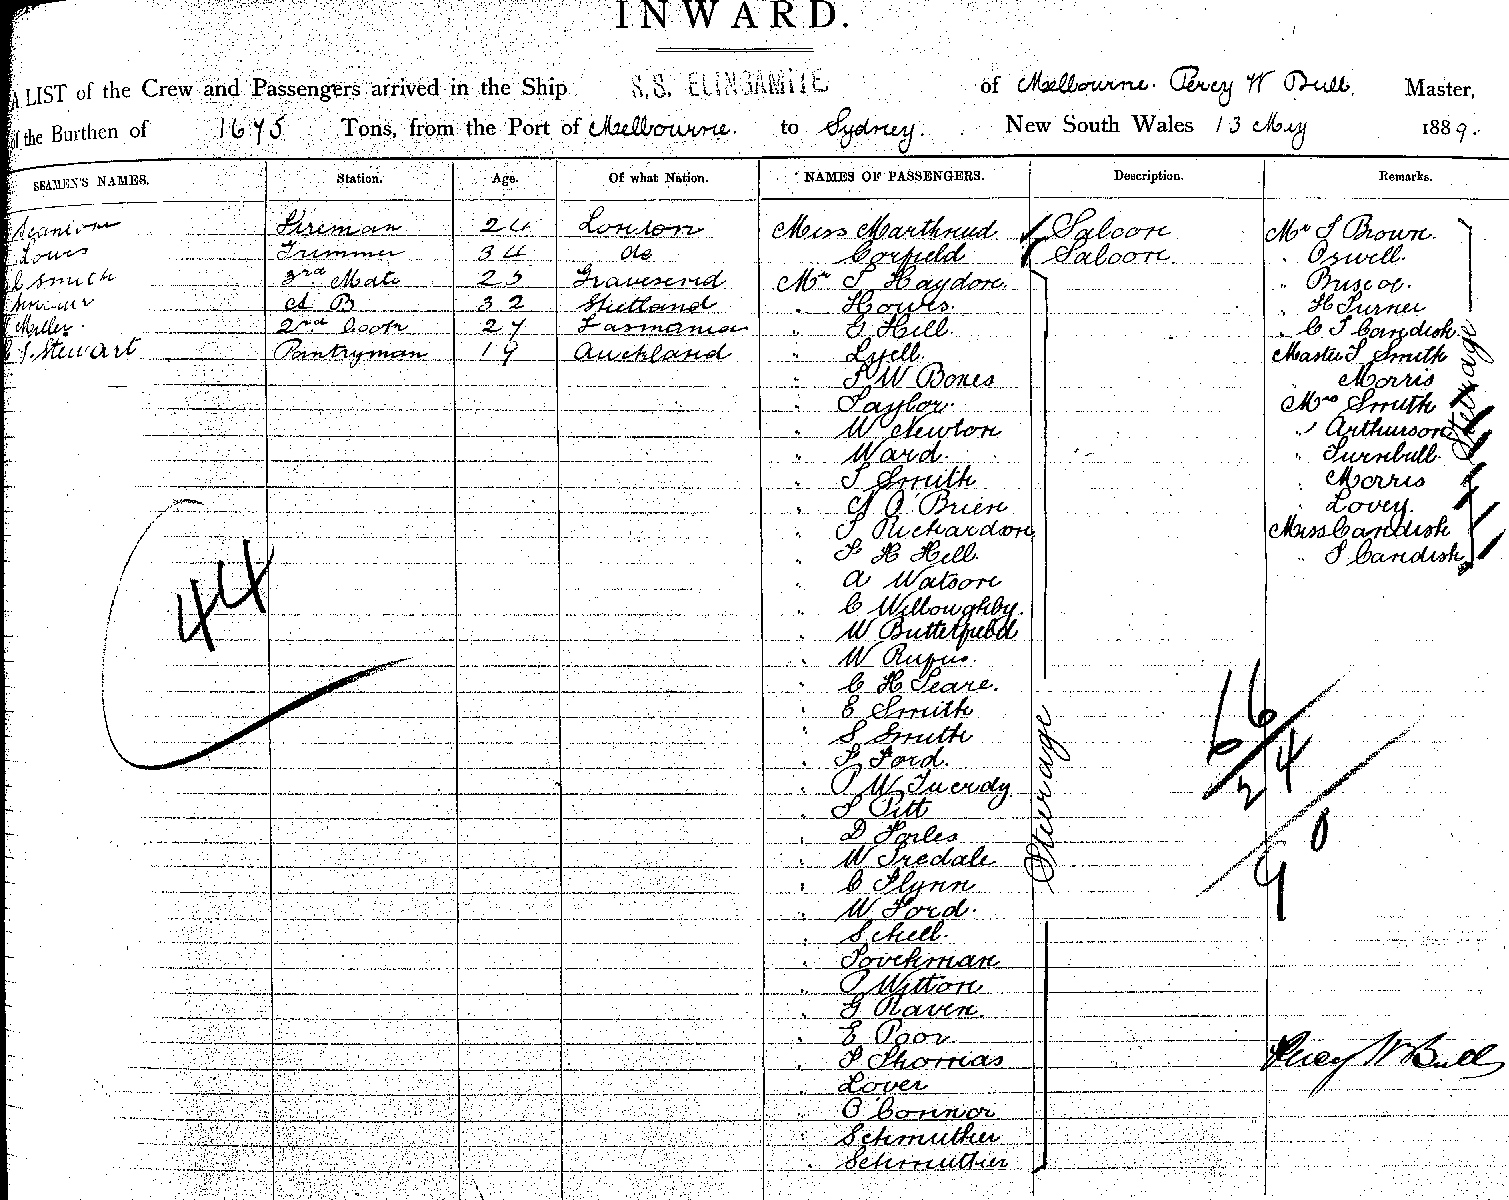 INWARD.
A LIST of the Crew and Passengers arrived in the Ship S.S. ELINGAMITE of Melbourne. Percy W Bull, Master,
of the Burthen of 1675 Tons, from the Port of Melbourne. to Sydney. New South Wales 13 May 1889.
SEAMEN'S NAMES. Station. Age. Of what Nation. NAMES OF PASSENGERS. Description. Remarks.
Fireman 24 London Miss Marthrud Saloon Mr S Brown.
Louis Trimmer 34 do " Corfield Saloon. " Oswell.
C Smith 3rd Mate 25 Gravesend Mr S Haydon. " Briscoe.
A B 32 Shetland " Howes. " H Turner
Miller. 2nd Cook 27 Tasmania " G Hill. " C S Caridish.
C S. Stewart Pantryman 19 Auckland " Lyell. Master S Smith
" S W Bones " Morris
" Taylor. Mrs Smith
" W Newton " Arthurson
" Ward. " Turnbull.
" S Smith " Morris
" O'Brien " Lovey.
" S Richardson Miss Caridish
" F H Hill. " S Caridish
" A Watson
" C Willoughby.
" W Butterfield
" W Rufus.
" C H Seare.
" E Smith
" S Smith
" F Ford.
" P W Tuerdy
" S Pitt
" D Forles
" W Iredale
" C Flynn
" W Ford.
" Schell.
" Tovehman
" P Witton
" G Raven.
" E Poor
" S Thomas
" Lover
" O'Connor
" Schmuthier
" Schmuthier
Steerage
Steerage
44
66
24
90
Percy W Bull